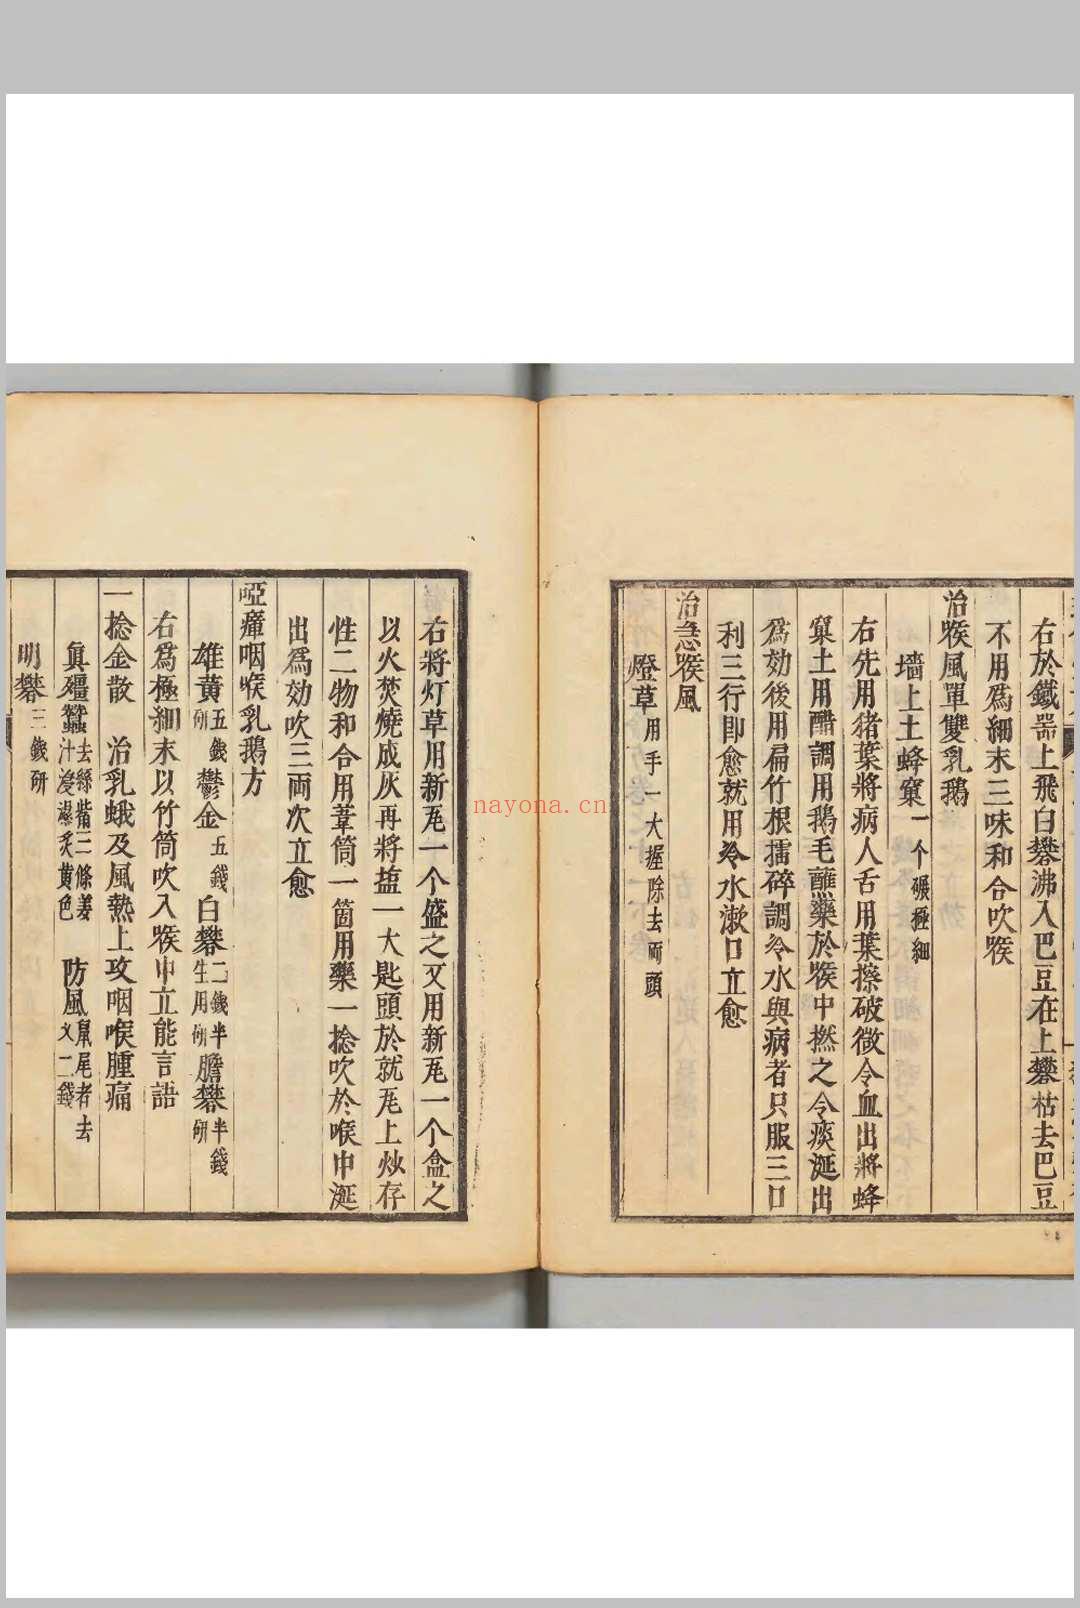 右於鐵器上飛白礬沸入巴豆在上礬枯去巴豆
不用爲細末三味和合吹喉
治喉風單雙乳鵝
墻上土蜂窠一个碾極細
右先用猪葉將病人舌用葉擦破微令血出將蜂
窠土用醋調用鵝毛蘸藥於喉中撚之令痰涎出
爲効後用扁竹根擂碎調冷水與病者只服三口
利三行即愈就用冷水漱口立愈
治急喉風
燈草用手一大握除去両頭
右將灯草用新瓦一个盛之又用新瓦一个盒之
以火焚燒成灰再將塩一大匙頭於就瓦上炒存
性二物和合用葦筒一箇用藥一捻吹於喉中涎
出爲効吹三両次立愈
啞瘴咽喉乳鵝方
雄黃五錢研 鬱金五錢 白礬二錢半生用研 膽礬半錢研
右爲極細末以竹筒吹入喉中立能言語
一捻金散 治乳蛾及風熱上攻咽喉腫痛
眞殭蠶去絲嘴三條姜汁浸濕炙黃色 防風鼠尾者去乂二錢
明礬三錢研
nayona.cn